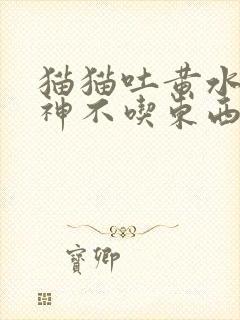 猫猫吐黄水
神不喫东西
寶卿